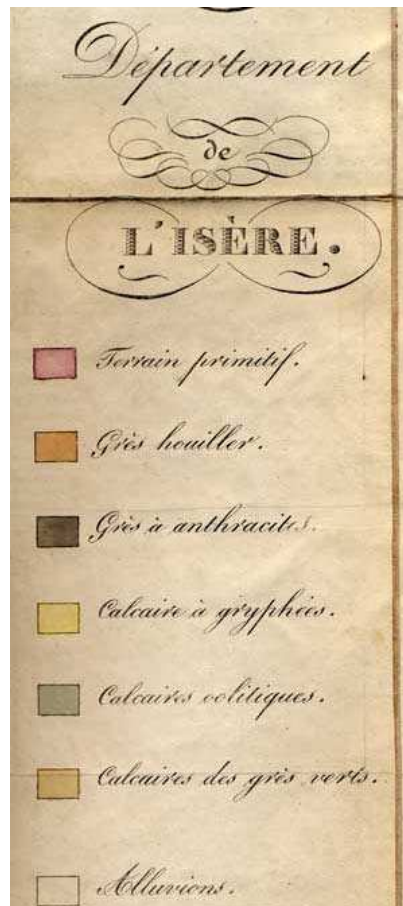 Département
de
L'ISÈRE.
Terrain primitif.
Grès houiller.
Grès à anthracites.
Calcaire à gryphées.
Calcaires oolitiques.
Calcaires des grès verts.
Alluvions.